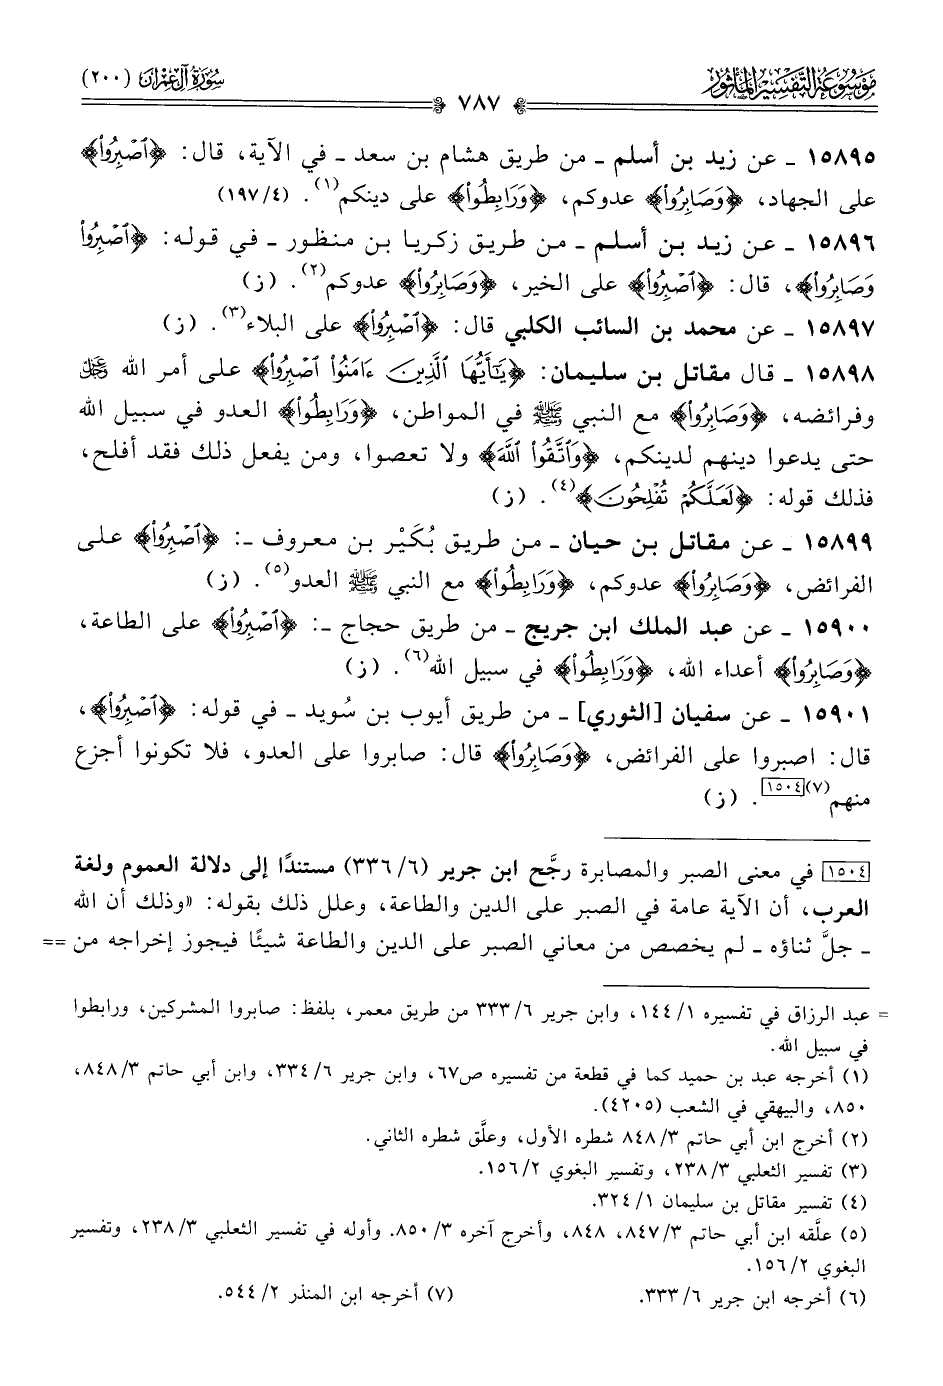 مَوْسُوعَة التَّفْسِير المَأْثُور
٧٨٧
سُورَةُ آلِ عِمْرَان (٢٠٠)
١٥٨٩٥ ـ عن زيد بن أسلم ـ من طريق هشام بن سعد ـ في الآية، قال: ﴿ٱصْبِرُوا۟﴾
على الجهاد، ﴿وَصَابِرُوا۟﴾ عدوكم، ﴿وَرَابِطُوا۟﴾ على دينكم(١). (٤/١٩٧)
١٥٨٩٦ ـ عن زيد بن أسلم ـ من طريق زكريا بن منظور ـ في قوله: ﴿ٱصْبِرُوا۟
وَصَابِرُوا۟﴾، قال: ﴿ٱصْبِرُوا۟﴾ على الخير، ﴿وَصَابِرُوا۟﴾ عدوكم(٢). (ز)
١٥٨٩٧ ـ عن محمد بن السائب الكلبي قال: ﴿ٱصْبِرُوا۟﴾ على البلاء(٣). (ز)
١٥٨٩٨ ـ قال مقاتل بن سليمان: ﴿يَٰٓأَيُّهَا ٱلَّذِينَ ءَامَنُوا۟ ٱصْبِرُوا۟﴾ على أمر الله ﷿
وفرائضه، ﴿وَصَابِرُوا۟﴾ مع النبي ﷺ في المواطن، ﴿وَرَابِطُوا۟﴾ العدو في سبيل الله
حتى يدعوا دينهم لدينكم، ﴿وَٱتَّقُوا۟ ٱللَّهَ﴾ ولا تعصوا، ومن يفعل ذلك فقد أفلح،
فذلك قوله: ﴿لَعَلَّكُمْ تُفْلِحُونَ﴾(٤). (ز)
١٥٨٩٩ ـ عن مقاتل بن حيان ـ من طريق بُكَيْر بن معروف ـ: ﴿ٱصْبِرُوا۟﴾ على
الفرائض، ﴿وَصَابِرُوا۟﴾ عدوكم، ﴿وَرَابِطُوا۟﴾ مع النبي ﷺ العدو(٥). (ز)
١٥٩٠٠ ـ عن عبد الملك ابن جريج ـ من طريق حجاج ـ: ﴿ٱصْبِرُوا۟﴾ على الطاعة،
﴿وَصَابِرُوا۟﴾ أعداء الله، ﴿وَرَابِطُوا۟﴾ في سبيل الله(٦). (ز)
١٥٩٠١ ـ عن سفيان [الثوري] ـ من طريق أيوب بن سُويد ـ في قوله: ﴿ٱصْبِرُوا۟﴾،
قال: اصبروا على الفرائض، ﴿وَصَابِرُوا۟﴾ قال: صابروا على العدو، فلا تكونوا أجزع
منهم(٧)[١٥٠٤]. (ز)
[١٥٠٤] في معنى الصبر والمصابرة رجَّح ابن جرير (٦/٣٣٦) مستندًا إلى دلالة العموم ولغة
العرب، أن الآية عامة في الصبر على الدين والطاعة، وعلل ذلك بقوله: «وذلك أن الله
ـ جلَّ ثناؤه ـ لم يخصص من معاني الصبر على الدين والطاعة شيئًا فيجوز إخراجه من ==
= عبد الرزاق في تفسيره ١/١٤٤، وابن جرير ٦/٣٣٣ من طريق معمر، بلفظ: صابروا المشركين، ورابطوا
في سبيل الله.
(١) أخرجه عبد بن حميد كما في قطعة من تفسيره ص٦٧، وابن جرير ٦/٣٣٤، وابن أبي حاتم ٣/٨٤٨،
٨٥٠، والبيهقي في الشعب (٤٢٠٥).
(٢) أخرج ابن أبي حاتم ٣/٨٤٨ شطره الأول، وعلَّق شطره الثاني.
(٣) تفسير الثعلبي ٣/٢٣٨، وتفسير البغوي ٢/١٥٦.
(٤) تفسير مقاتل بن سليمان ١/٣٢٤.
(٥) علَّقه ابن أبي حاتم ٣/٨٤٧، ٨٤٨، وأخرج آخره ٣/٨٥٠. وأوله في تفسير الثعلبي ٣/٢٣٨، وتفسير
البغوي ٢/١٥٦.
(٦) أخرجه ابن جرير ٦/٣٣٣. (٧) أخرجه ابن المنذر ٢/٥٤٤.